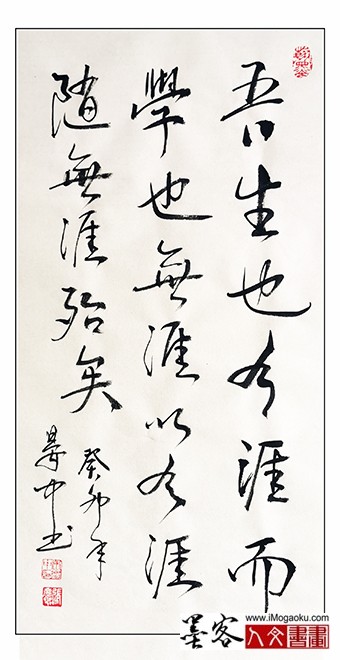 吾生也有涯而
學也無涯以有涯
隨無涯殆矣
癸卯年
中书
墨客
www.iMogaoku.com
人文書畫